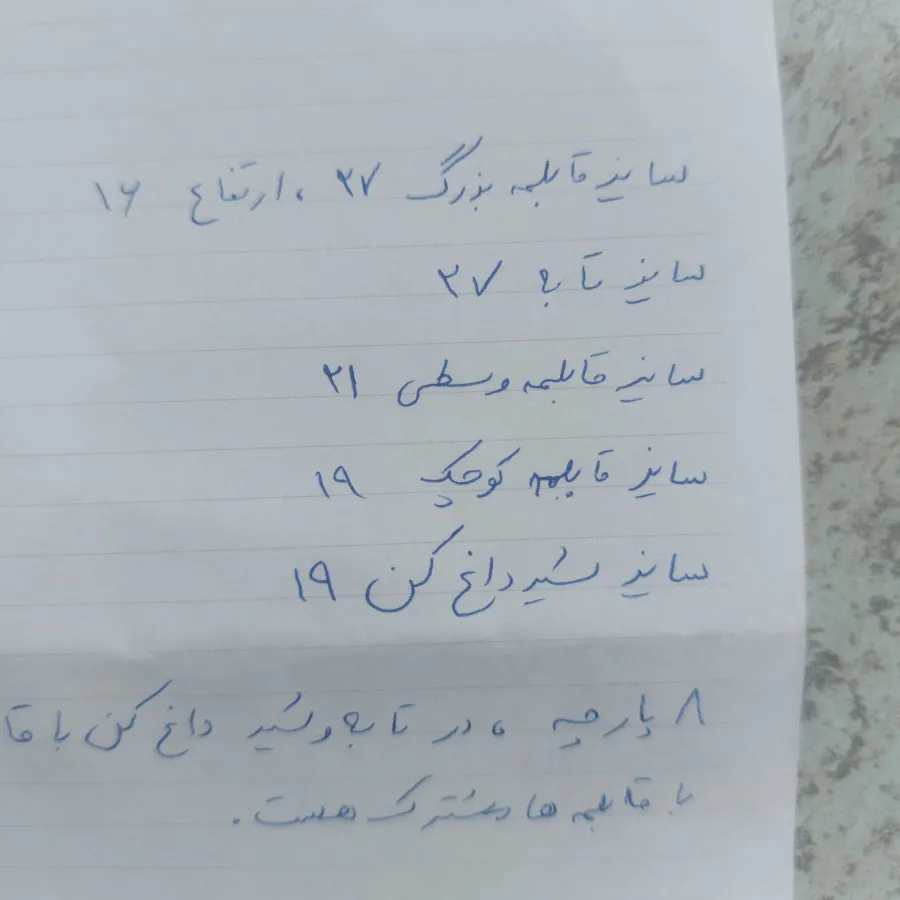 سایز قابلمه بزرگ ۲۷ ، ارتفاع ۱۶
سایز تابه ۲۷
سایز قابلمه وسطی ۲۱
سایز قابلمه کوچک ۱۹
سایز شیر داغ کن ۱۹
۸ پارچه ، در تابه و شیر داغ کن با قا
با قابلمه ها مشترک هست .